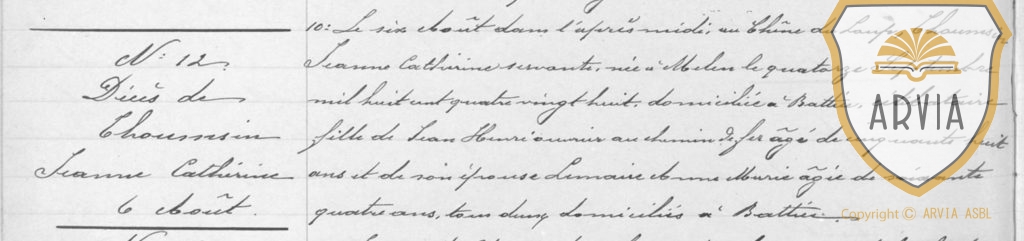 N° 12.
Décès de
Thoumsin
Jeanne Catherine
6 Août.
10: Le six Août dans l'après midi, au Chêne du Loup, Thoumsin
Jeanne Catherine servante, née à Melen le quatorze Septembre
mil huit cent quatre vingt huit, domiciliée à Battice, célibataire
fille de Jean Henri ouvrier au chemin de fer âgé de cinquante huit
ans et de son épouse Lemaire Anne Marie âgée de soixante
quatre ans, tous deux domiciliés à Battice.
ARVIA
Copyright © ARVIA ASBL